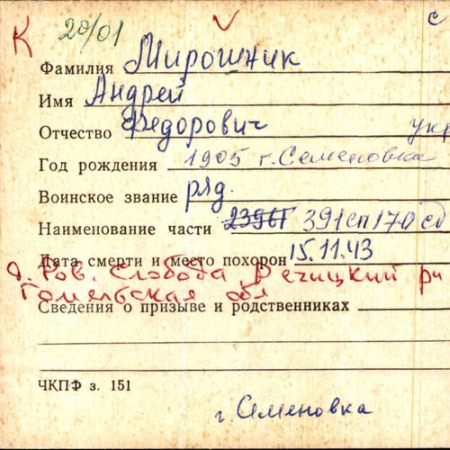 К 20/01 с
Фамилия Мирошник
Имя Андрей
Отчество Федорович укр
Год рождения 1905 г. Семеновка
Воинское звание ряд.
Наименование части 2396Г 391 сп 170 сд
Дата смерти и место похорон 15.11.43
д. Ров. Слобода Речицкий рн
Гомельская обл
Сведения о призыве и родственниках
ЧКПФ з. 151
г. Семеновка